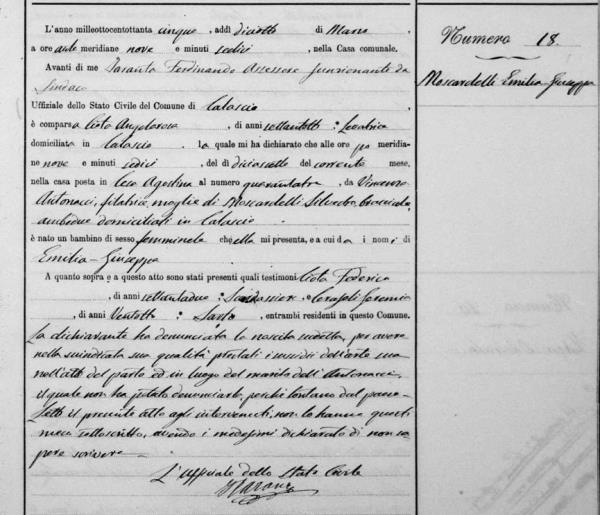 Numero 18.
Moscardelli Emilia-Giuseppa
L'anno milleottocentottanta cinque, addì diciotto di Marzo
a ore ante meridiane nove e minuti sedici, nella Casa comunale.
Avanti di me Ferdinando Assessore funzionante da
Sindaco
Uffiziale dello Stato Civile del Comune di Calascio
è comparsa Ciota Angelarosa, di anni settantotto: Levatrice
domiciliata in Calascio, la quale mi ha dichiarato che alle ore po meridia-
ne nove e minuti sedici, del dì diciassette del corrente mese,
nella casa posta in Agostina al numero quarantatre, da Vincenza
Antonacci, filatrice, moglie di Moscardelli Silvestro, bracciale,
ambedue domiciliati in Calascio
è nato un bambino di sesso femminile che ella mi presenta, e a cui da i nomi di
Emilia-Giuseppa
A quanto sopra e a questo atto sono stati presenti quali testimoni Ciota Federico
, di anni settantadue: e Geremia
, di anni Ventotto: Sarto, entrambi residenti in questo Comune.
La dichiarante ha denunciato la nascita suddetta, per avere
nella suindicata sua qualità prestati i sussidi dell'arte sua
nell'atto del parto ed in luogo del marito dell'Antonacci,
il quale non ha potuto denunciarlo, perchè lontano dal paese.
Letto il presente atto agli intervenuti, non lo hanno questi
meco sottoscritto, avendo i medesimi dichiarato di non sa-
pere scrivere
L'Uffiziale dello Stato Civile